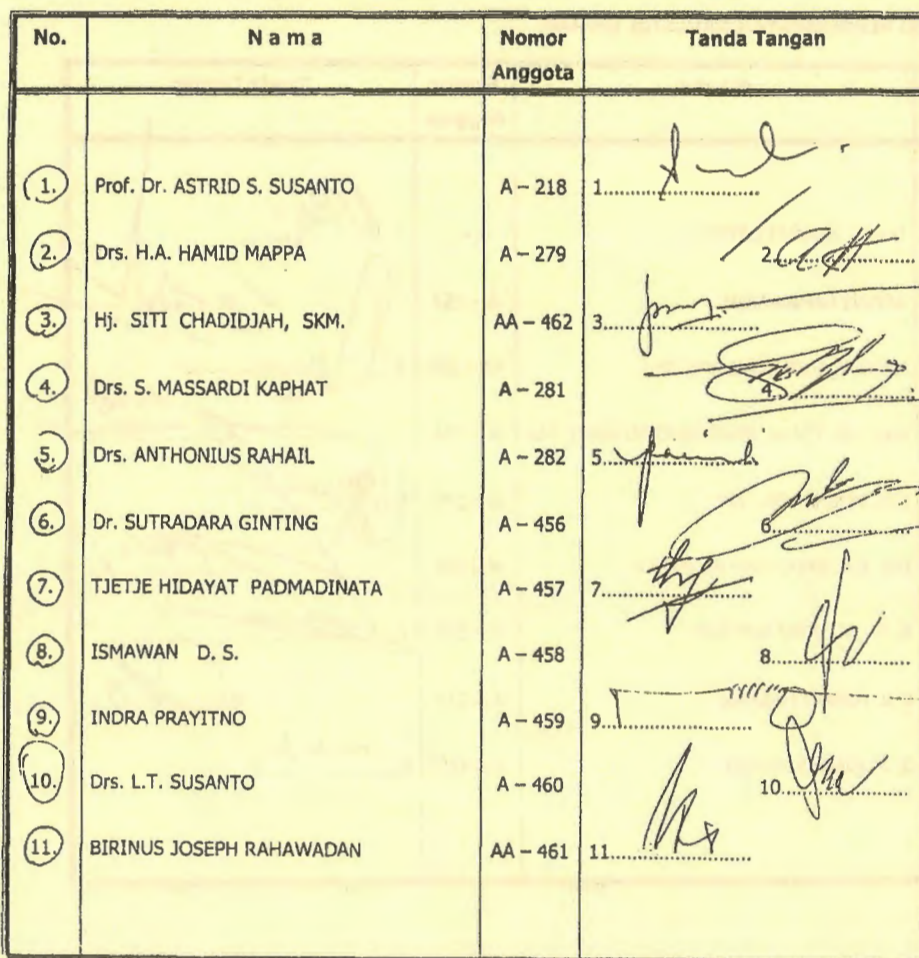 No. Nama Nomor Anggota Tanda Tangan
1. Prof. Dr. ASTRID S. SUSANTO A – 218 1....................
2. Drs. H.A. HAMID MAPPA A – 279 2....................
3. Hj. SITI CHADIDJAH, SKM. AA – 462 3....................
4. Drs. S. MASSARDI KAPHAT A – 281 4....................
5. Drs. ANTHONIUS RAHAIL A – 282 5....................
6. Dr. SUTRADARA GINTING A – 456 6....................
7. TJETJE HIDAYAT PADMADINATA A – 457 7....................
8. ISMAWAN D. S. A – 458 8....................
9. INDRA PRAYITNO A – 459 9....................
10. Drs. L.T. SUSANTO A – 460 10....................
11. BIRINUS JOSEPH RAHAWADAN AA – 461 11....................